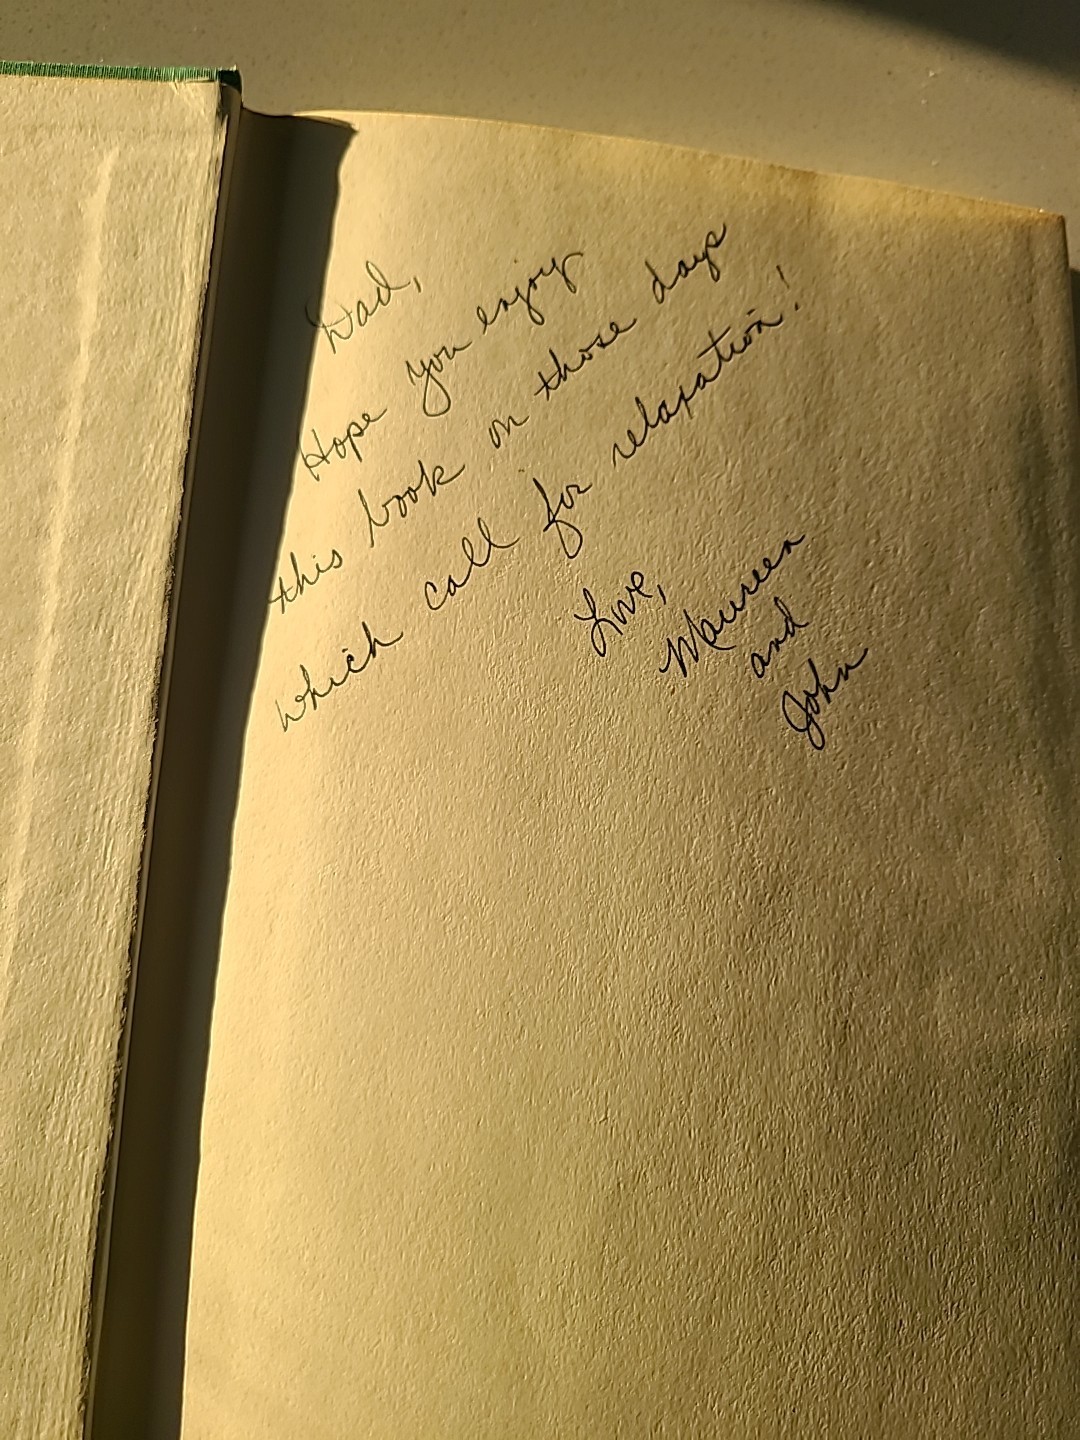 Dad,
Hope you enjoy
this book on those days
which call for relaxation!
Love,
Maureen
and
John